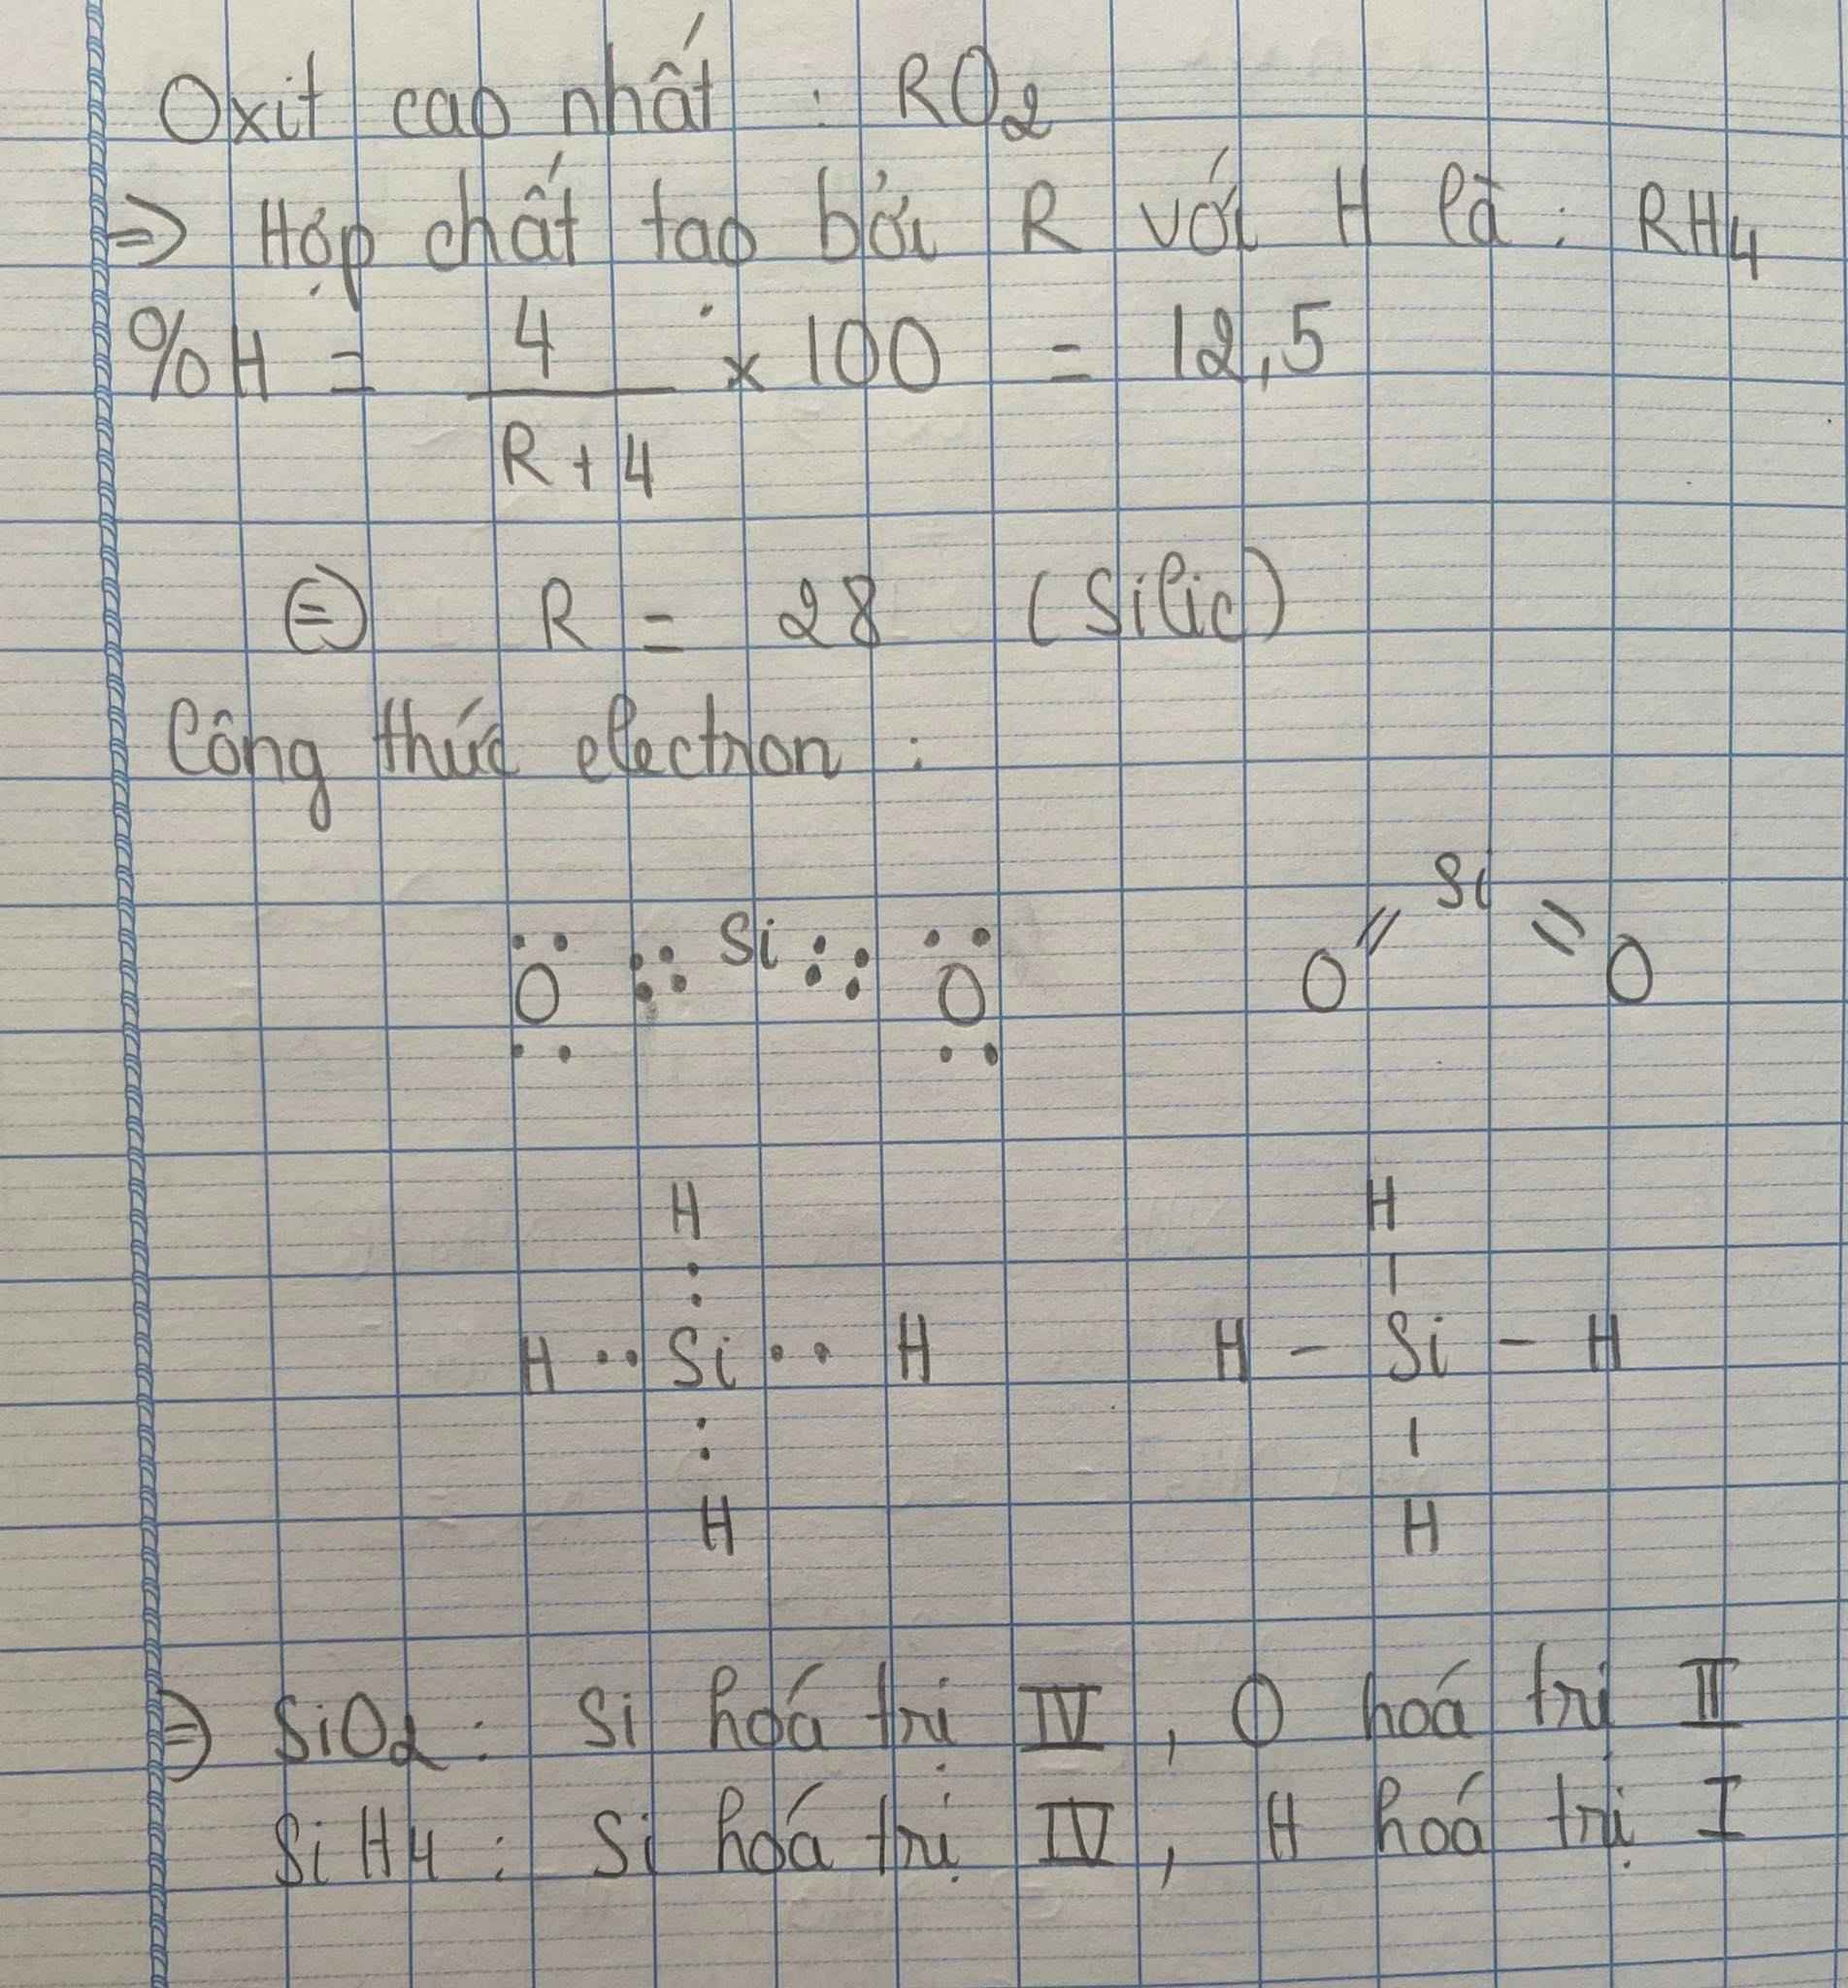 Oxit cao nhất : RO2
=> Hợp chất tạo bởi R với H là : RH4
%H = 4/(R + 4) × 100 = 12,5
=> R = 28 (Silic)
Công thức electron :
O :: Si :: O    O = Si = O
H    H
H : Si : H    H - Si - H
H    H
=> SiO2 : Si hoá trị IV, O hoá trị II
SiH4 : Si hoá trị IV, H hoá trị I